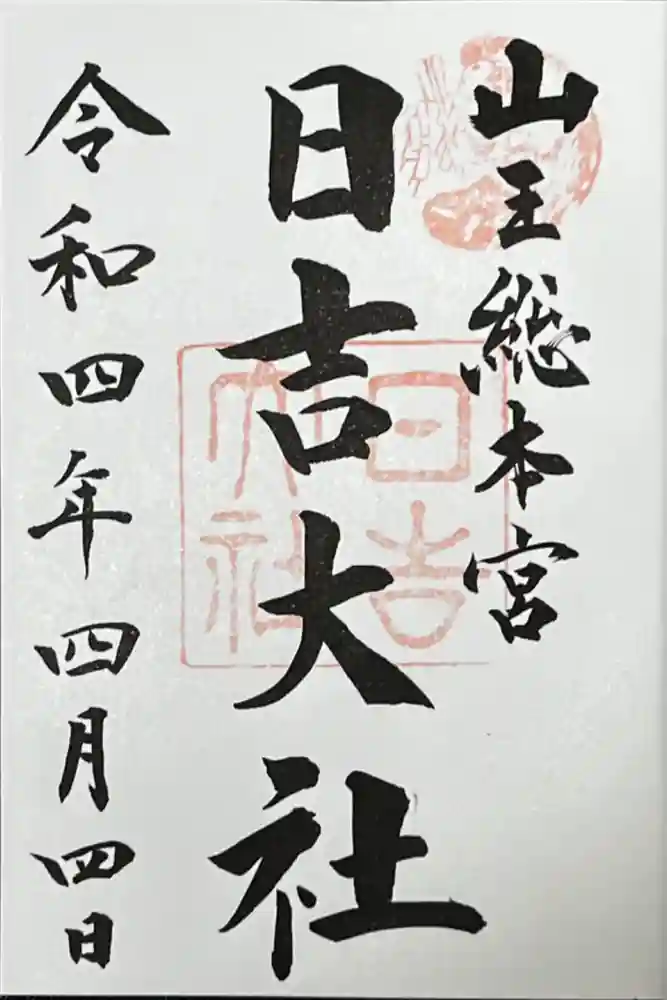 山王総本宮
日吉大社
日吉
大社
令和四年四月四日